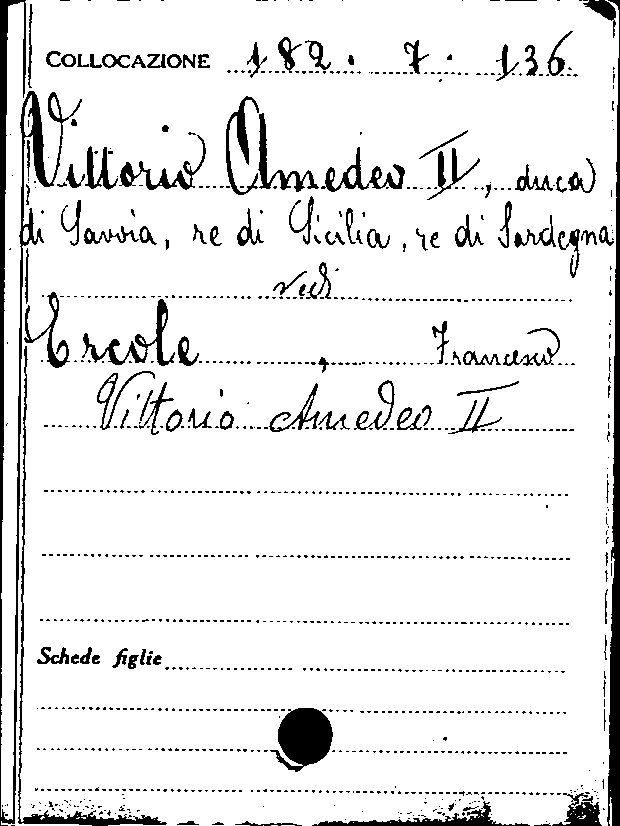 COLLOCAZIONE 182. 7. 136
Vittorio Amedeo II, duca
di Savoia, re di Sicilia, re di Sardegna
vedi
Ercole , Francesco
Vittorio Amedeo II
Schede figlie